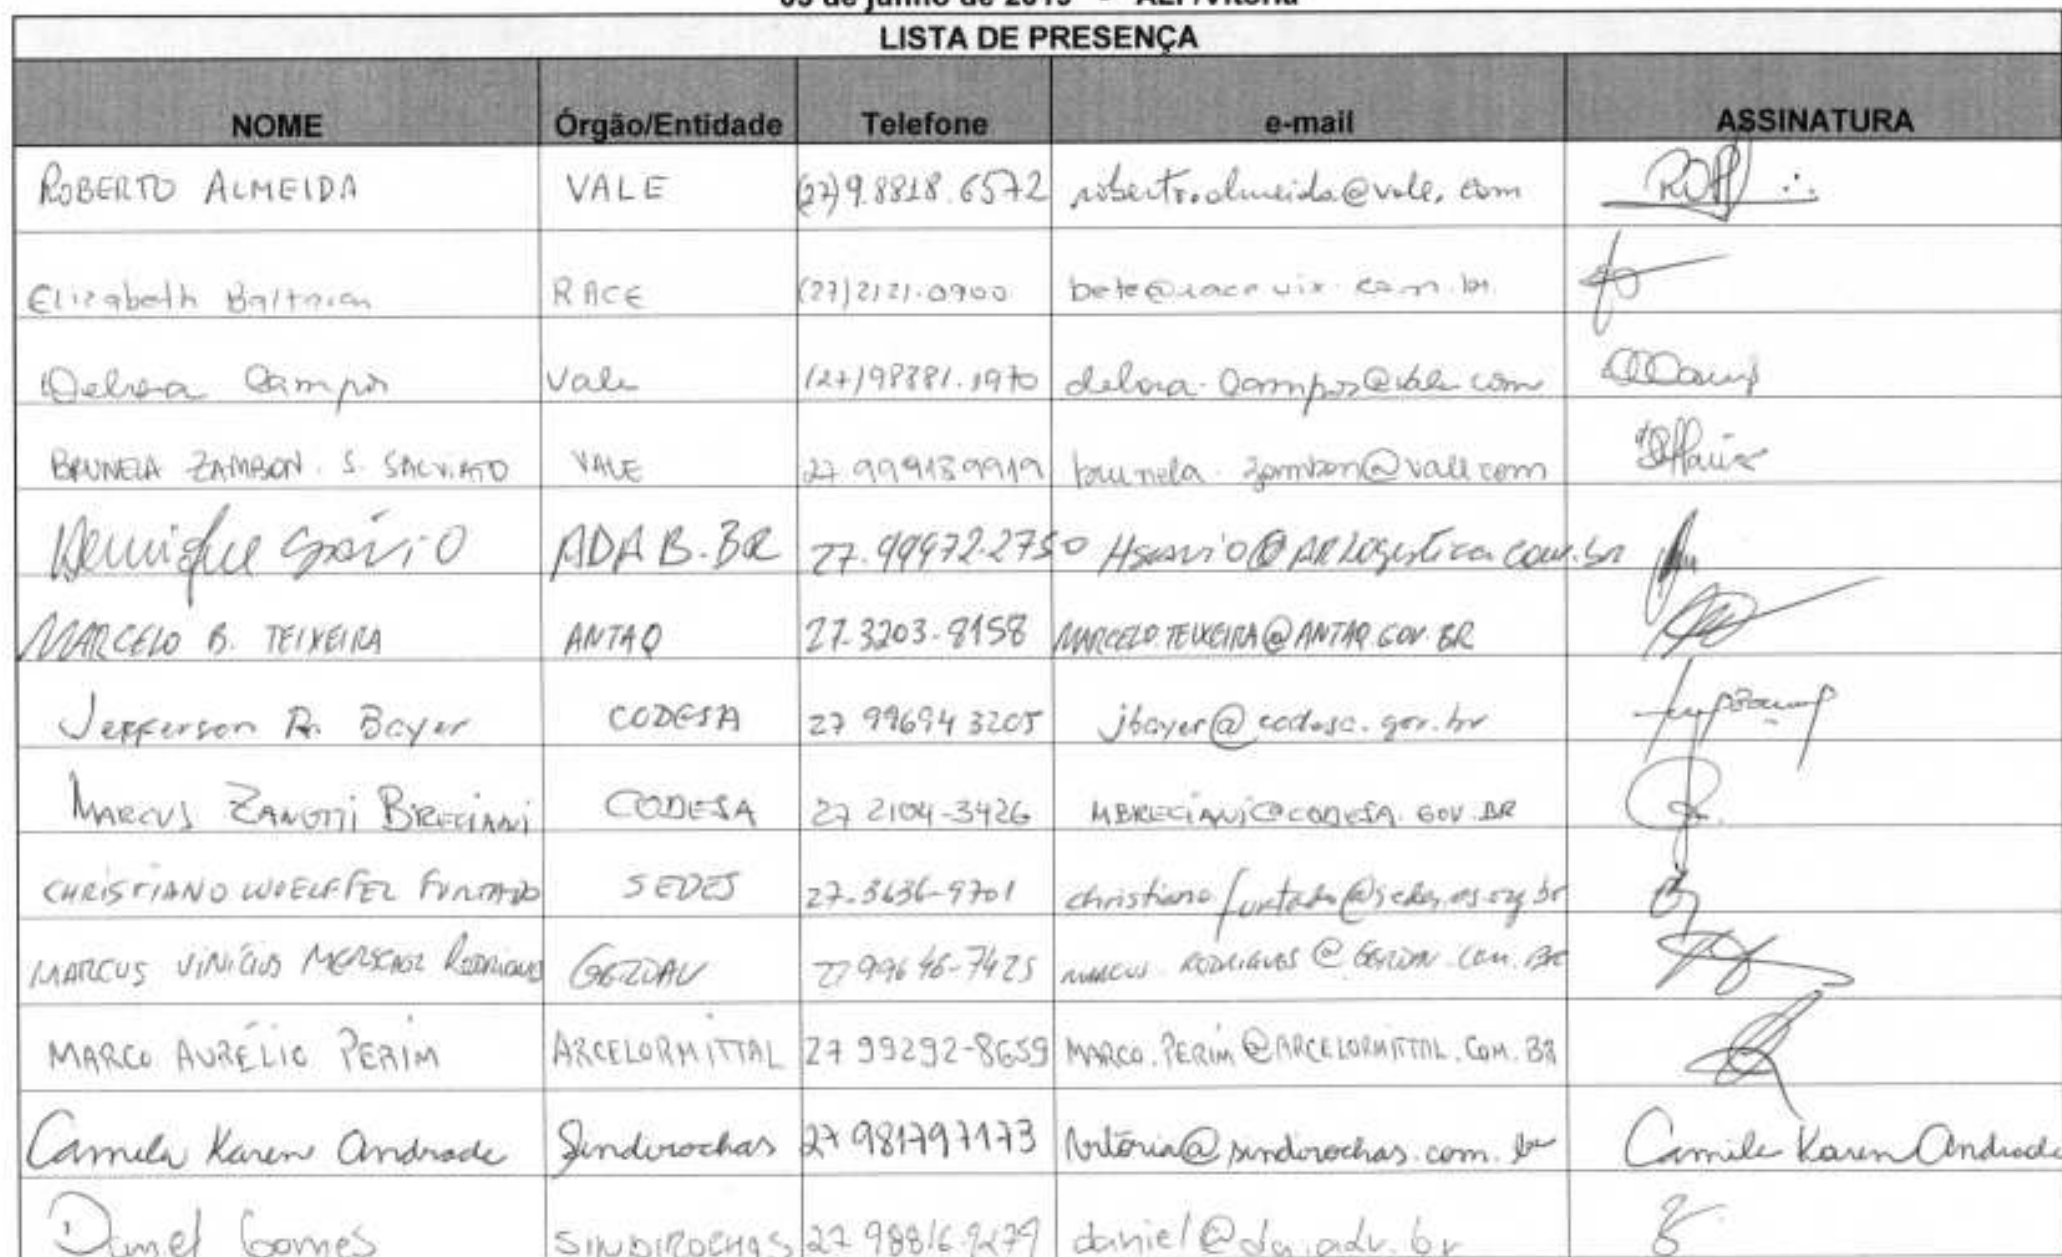 LISTA DE PRESENÇA
NOME Órgão/Entidade Telefone e-mail ASSINATURA
ROBERTO ALMEIDA VALE (27)9.8818.6572 roberto.almeida@vale.com
Elizabeth RACE (27)2121.0900 bete@racevix.com.br
Debora Campos Vale (27)98881.1970 debora.campos@vale.com
BRUNELA ZAMBON. S. SALVIATO VALE 27.999189919 brunela.zambon@vale.com
Henrique Sávio 27.99972.2750
MARCELO B. TEIXEIRA ANTAQ 27.3203-8158 MARCELO.TEIXEIRA@ANTAQ.GOV.BR
Jefferson R. Bayer CODESA 27 99694 3205 jbayer@codesa.gov.br
MARCUS ZANOTTI BRECIANI CODESA 27 2104-3426 MBRECIANI@CODESA.GOV.BR
CHRISTIANO WOELFFEL FURTADO SEDES 27.3636-9701
MARCUS VINÍCIUS RODRIGUES GERDAU 27 99646-7425 MARCUS.RODRIGUES@GERDAU.COM.BR
MARCO AURÉLIO PERIM ARCELORMITTAL 27 99292-8659 MARCO.PERIM@ARCELORMITTAL.COM.BR
Camila Karen Andrade Sindirochas 27 981797173 vitoria@sindirochas.com.br Camila Karen Andrade
Daniel Gomes SINDIROCHAS daniel@dg.adv.br